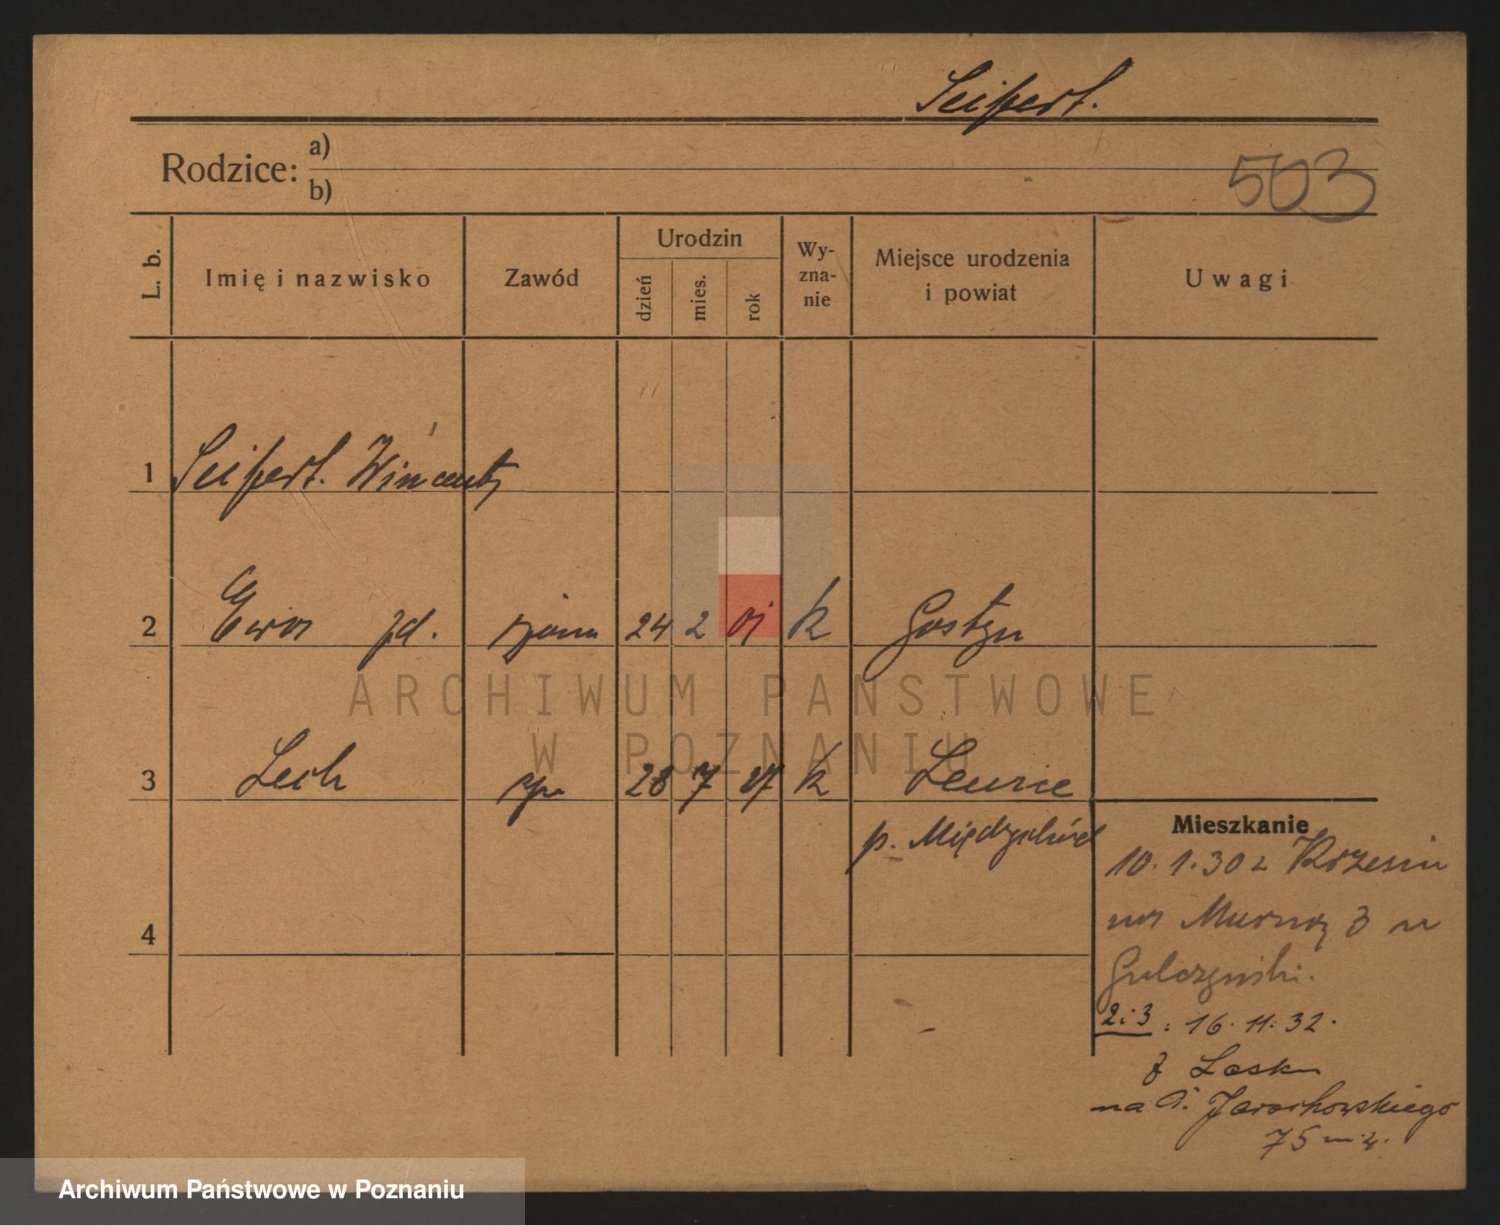 Seifert.
Rodzice: a)
b)
503
L. b.
Imię i nazwisko
Zawód
Urodzin
dzień
mies.
rok
Wy-
zna-
nie
Miejsce urodzenia
i powiat
Uwagi
1 Seifert. Wincenty
2 Ewa żona 24 2 01 k Gostyń
3 Lech syn 28 7 27 k
p. Międzychód
Mieszkanie
10.1.30 z Krzesin
na Murną 3 u
Gulczyński.
4
2 i 3 : 16. 11. 32.
z Lasku
na A. Jarochowskiego
75 m. 4.
ARCHIWUM PAŃSTWOWE
W POZNANIU
Archiwum Państwowe w Poznaniu